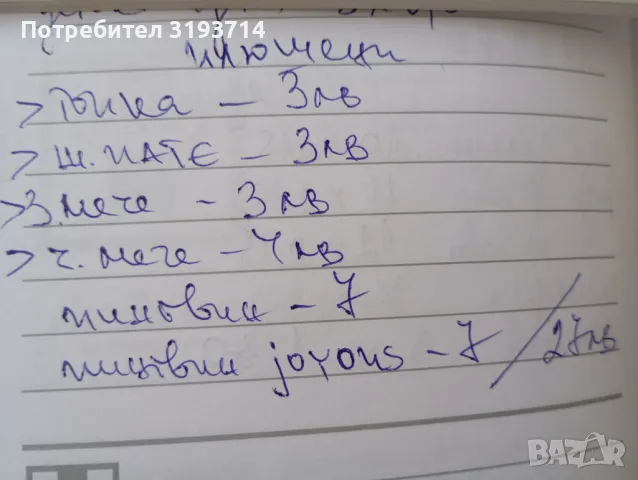 Потребител 3193714
плюшени
> топка – 3лв
> ш. патє – 3лв
> з. мече – 3лв
> г. мече – 4лв
пингвин – 7
пингвин joyous – 7 / 27лв
BAZAR